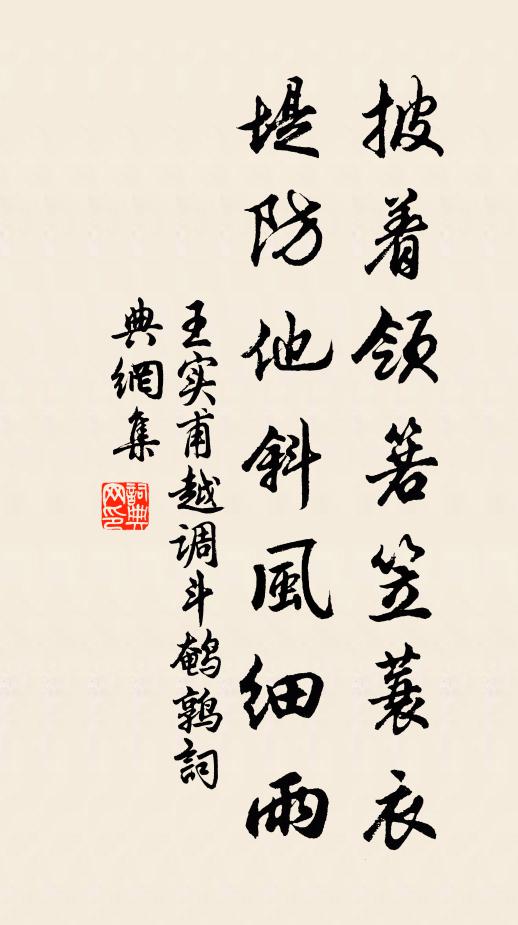 披着领箬笠蓑衣
堤防他斜風细雨
王实甫越调斗鹌鹑詞
典網集
詞典
网印